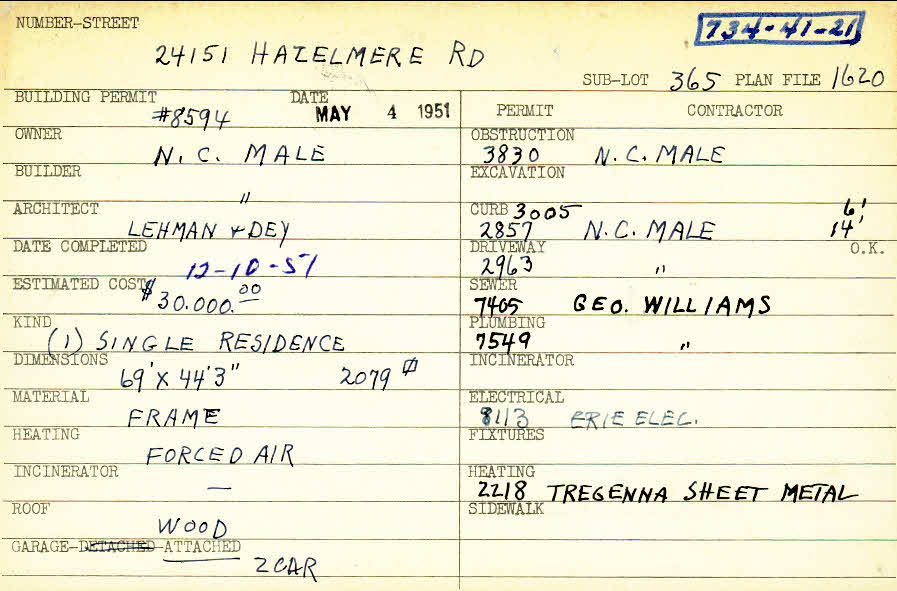 NUMBER-STREET
734-41-21
24151 HAZELMERE RD
SUB-LOT 365 PLAN FILE 1620
BUILDING PERMIT #8594 DATE MAY 4 1951
OWNER N. C. MALE
BUILDER "
ARCHITECT LEHMAN & DEY
DATE COMPLETED 12-10-51
ESTIMATED COST $30.000.00
KIND (1) SINGLE RESIDENCE
DIMENSIONS 69' X 44'3" 2079
MATERIAL FRAME
HEATING FORCED AIR
INCINERATOR —
ROOF WOOD
GARAGE-DETACHED-ATTACHED
2 CAR
PERMIT CONTRACTOR
OBSTRUCTION
3830 N.C. MALE
EXCAVATION
CURB 3005 6'
2857 N.C. MALE 14'
DRIVEWAY O.K.
2963 "
SEWER
7405 GEO. WILLIAMS
PLUMBING
7549 "
INCINERATOR
ELECTRICAL
8113 ERIE ELEC.
FIXTURES
HEATING
2218 TREGENNA SHEET METAL
SIDEWALK